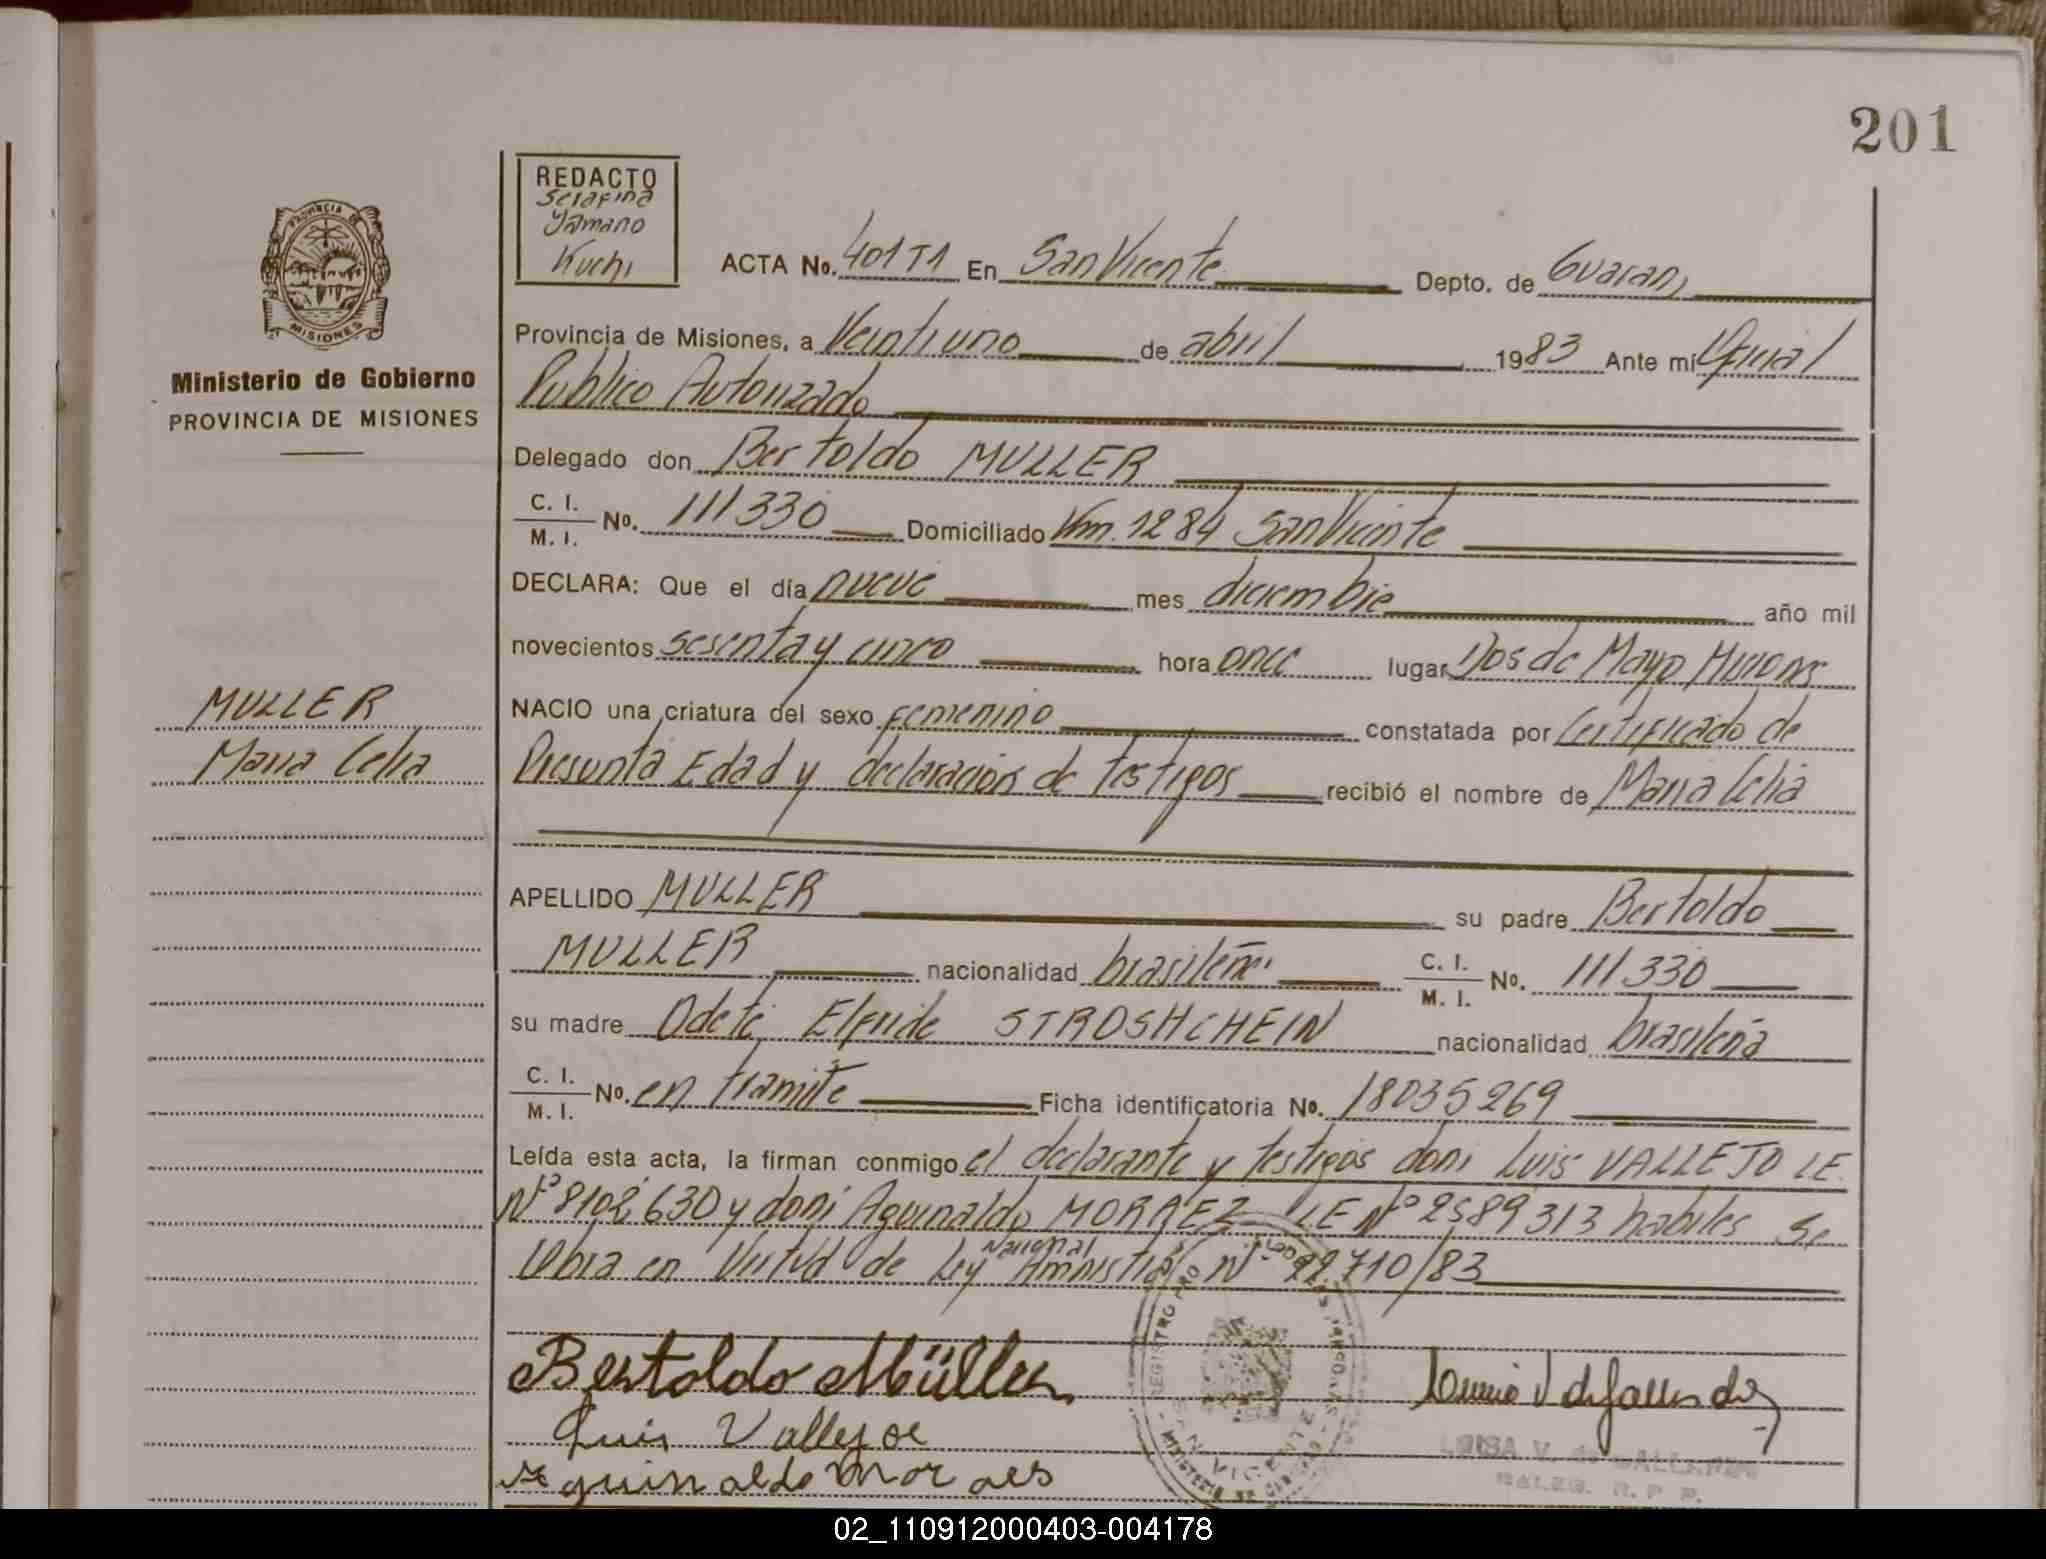 201
REDACTO
Serafina
Yamano
Kuchi
PROVINCIA DE
MISIONES
Ministerio de Gobierno
PROVINCIA DE MISIONES
ACTA No. 401 T1 En San Vicente Depto. de Guarani
Provincia de Misiones, a Veintiuno de abril 1983 Ante mí Oficial
Publico Autorizado
Delegado don Bertoldo MULLER
C. I.
M. I. No. 111330 Domiciliado Km. 1284 San Vicente
DECLARA: Que el día nueve mes diciembre año mil
novecientos sesenta y cinco hora once lugar Dos de Mayo Misiones
MULLER
NACIO una criatura del sexo femenino constatada por Certificado de
Maria Celia
Presunta Edad y declaración de testigos recibió el nombre de Maria Celia
APELLIDO MULLER su padre Bertoldo
MULLER nacionalidad brasileña C. I.
M. I. No. 111330
su madre Odete Elfride STROSHCHEIN nacionalidad brasileña
C. I.
M. I. No. en tramite Ficha identificatoria No. 18035269
Leída esta acta, la firman conmigo el declarante y testigos don: Luis VALLEJO LE.
Nº 8102.630 y don: Aguinaldo MORAEZ LE Nº 2589313 habiles Se
labra en Virtud de Ley Nacional Amnistia Nº 22.710/83
Bertoldo Müller
Luis Vallejoe
Aguinaldo Moraes
SAN VICENTE
LUISA V. de GALLARDO
DELEG. R. P. P.
02_110912000403-004178